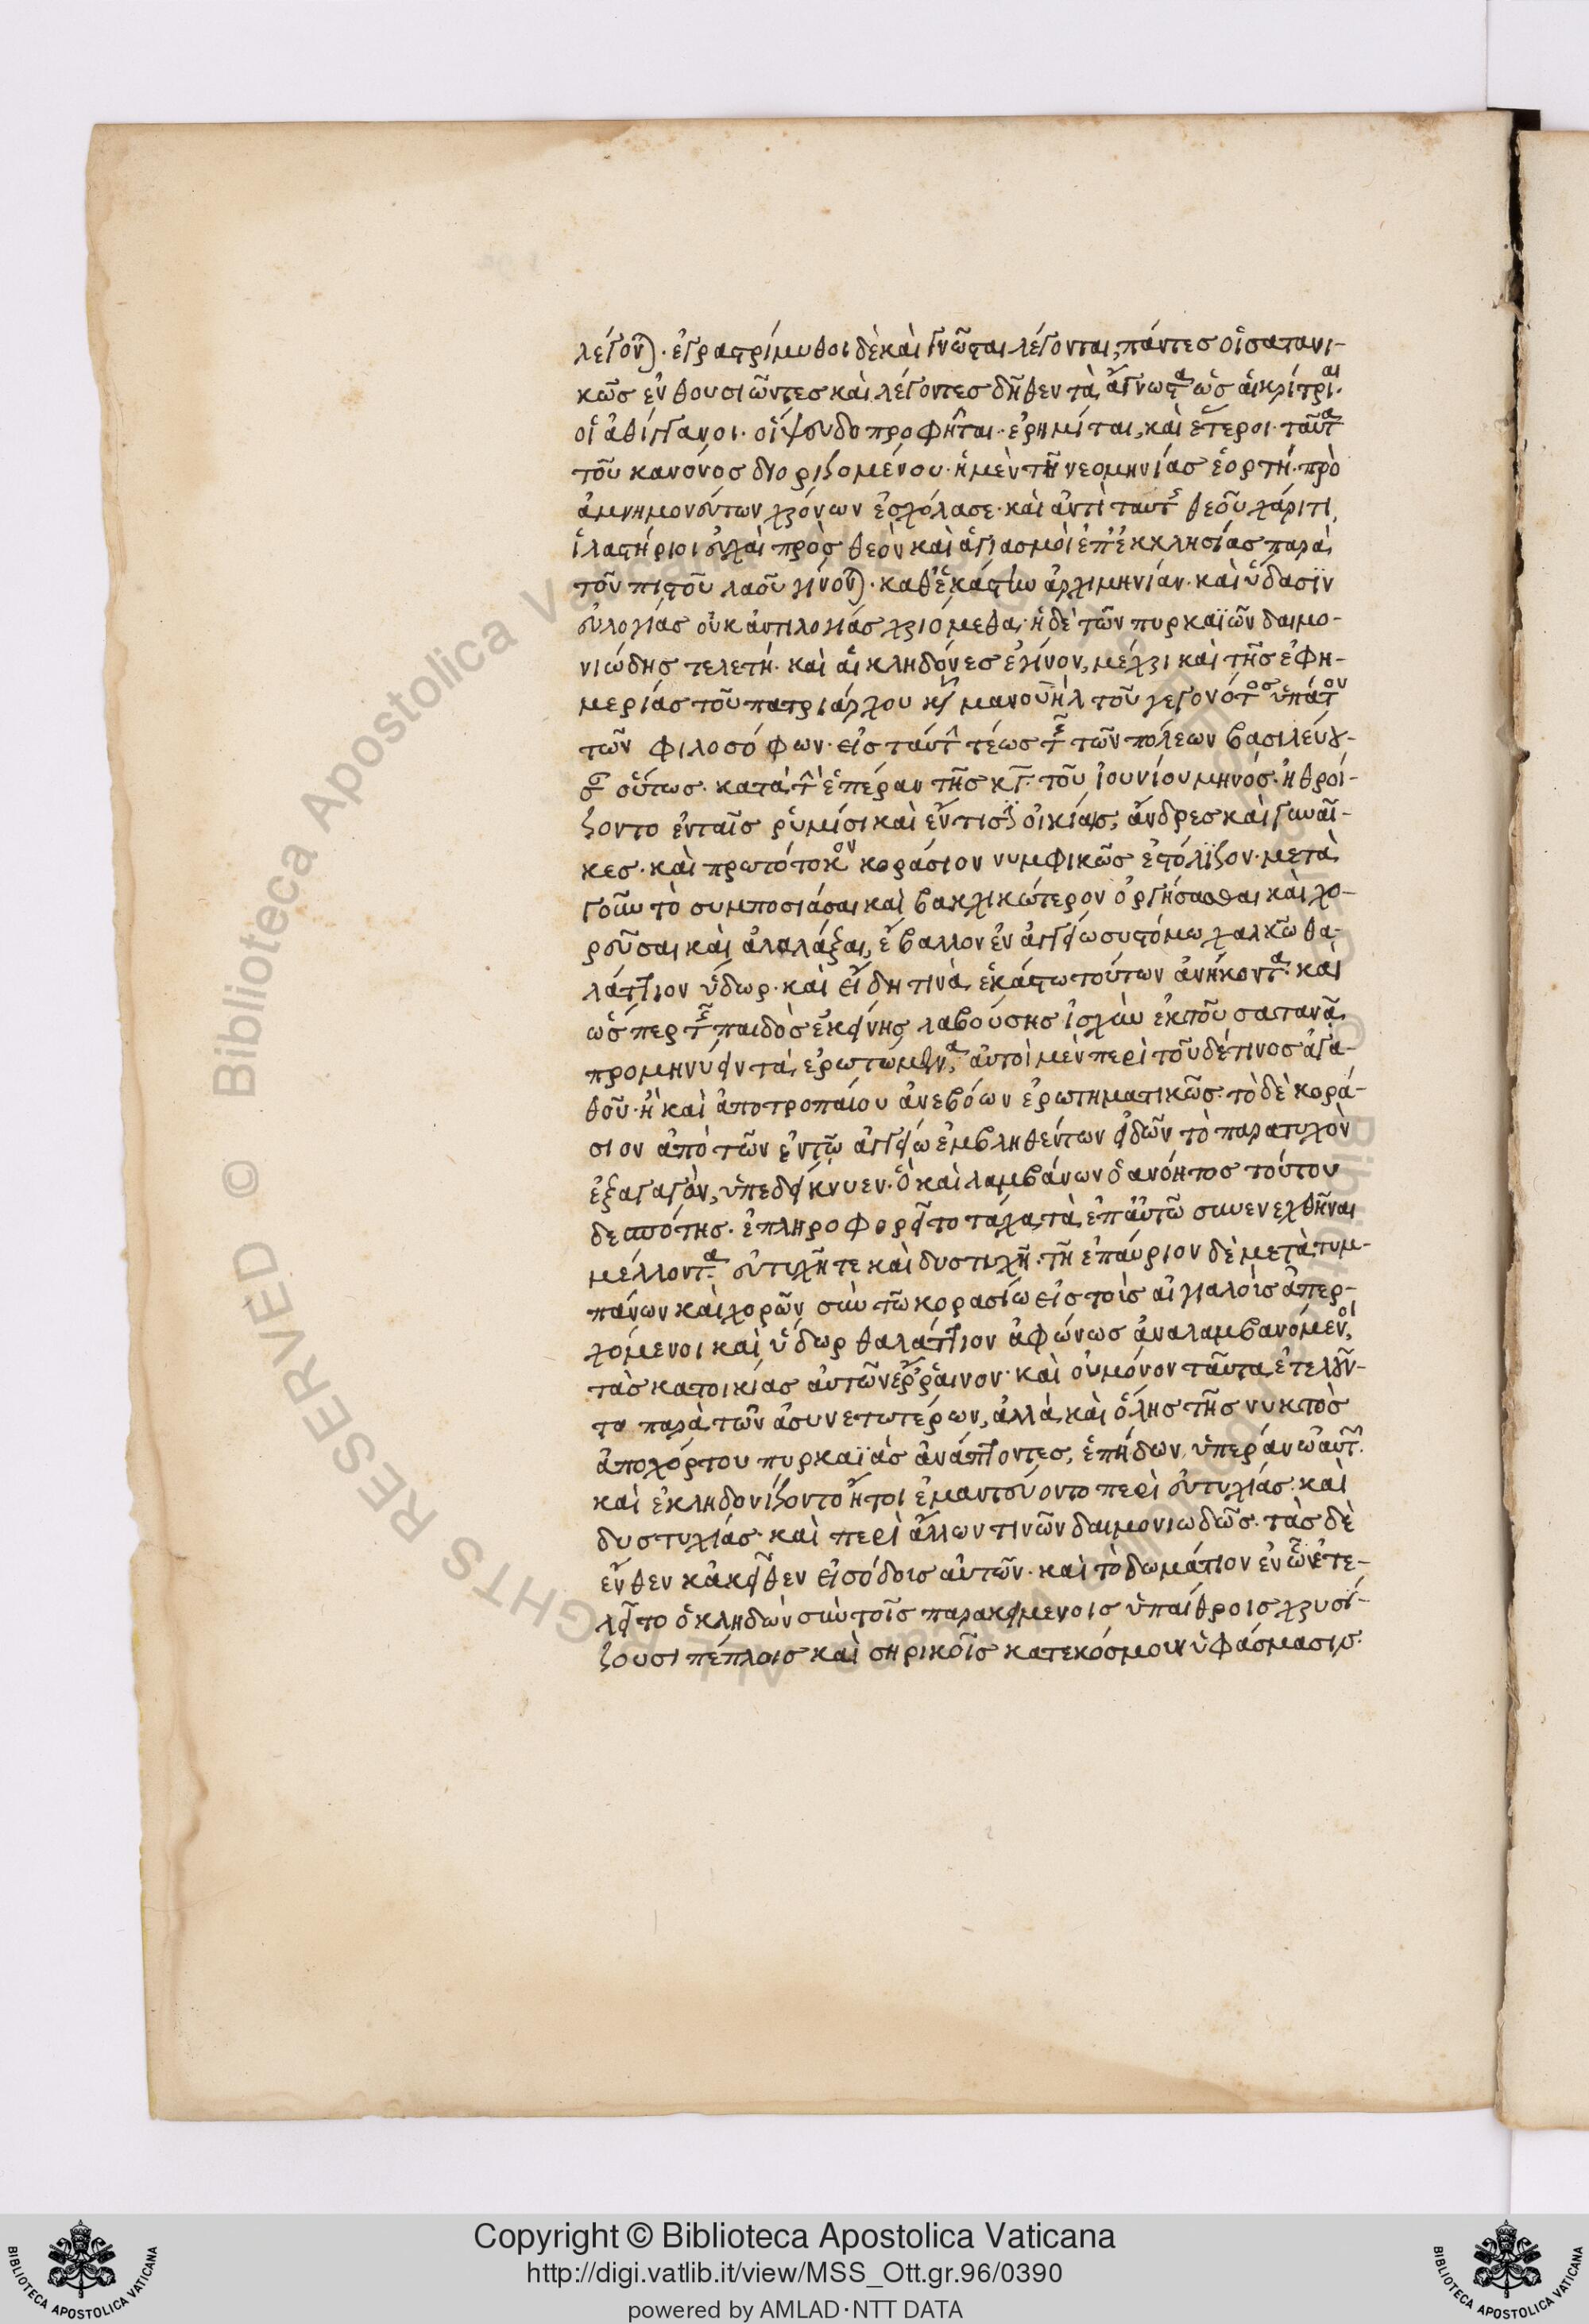 λέγον). ἐγγαστρίμυθοι δὲ καὶ γνῶσται λέγονται, πάντες οἱ σατανι-
κῶς ἐνθουσιῶντες καὶ λέγοντες δῆθεν τὰ ἄγνωστα ὡς αἱ κρίτριαι.
οἱ ἀθίγγανοι. οἱ ψευδοπροφῆται. ἐρημίται, καὶ ἕτεροι. ταῦτα
τοῦ κανόνος διοριζομένου. ἡ μὲν τῆ νεομηνίας ἑορτή. πρὸ
ἀμνημονεύτων χρόνων ἐσχόλασε. καὶ ἀντὶ ταύτ θεοῦ χάριτι,
ἱλαστήριοι εὐχαὶ πρὸς θεὸν καὶ ἁγιασμοὶ ἐπ' ἐκκλησίας παρὰ
τοῦ πιστοῦ λαοῦ γίνον). καθ' ἑκάστην ἀρχιμηνίαν. καὶ ὕδασϊν
εὐλογίας οὐκ ἀντιλογίας χριόμεθα. ἡ δὲ τῶν πυρκαϊῶν δαιμο-
νιώδης τελετή. καὶ αἱ κληδόνες ἐγίνον, μέχρι καὶ τῆς ἐφη-
μερίας τοῦ πατριάρχου κυ μανουὴλ τοῦ γεγονότος ὑπάτου
τῶν φιλοσόφων. εἰς ταύτ τέως τ τῶν πόλεων βασιλεύου-
σ οὕτως. κατὰ τ ἑσπέραν τῆς κγ. τοῦ ἰουνίου μηνός. ἠθροί-
ζοντο ἐν ταῖς ῥύμισι καὶ ἔν τισϊ οἰκίαις, ἄνδρες καὶ γυναῖ-
κες. καὶ πρωτότοκον κοράσιον νυμφικῶς ἐστόλϊζον. μετὰ
γοῦν τὸ συμποσιάσαι καὶ βακχικώτερον ὀρχήσασθαι καὶ χο-
ρεῦσαι καὶ ἀλαλάξαι, ἔβαλλον ἐν ἀγγείω συστόμω χαλκῶ θα-
λάττιον ὕδωρ. καὶ εἴδη τινὰ ἑκάστω τούτων ἀνήκοντα. καὶ
ὥσπερ τ παιδὸς ἐκείνης λαβούσης ἰσχὺν ἐκ τοῦ σατανᾶ
προμηνύειν τὰ ἐρωτώμενα, αὐτοὶ μὲν περὶ τοῦδέ τινος ἀγα-
θοῦ. ἢ καὶ ἀποτροπαίου ἀνεβόων ἐρωτηματικῶς. τὸ δὲ κορά-
σιον ἀπὸ τῶν ἐν τῶ ἀγγείω ἐμβληθέντων εἰδῶν τὸ παρατυχὸν
ἐξαγαγὸν, ὑπεδείκνυεν. ὃ καὶ λαμβάνων ὁ ανόητος τούτου
δεσπότης. ἐπληροφορεῖτο τάχα τὰ ἐπ' αὐτῶ συνενεχθῆναι
μέλλοντα εὐτυχῆ τε καὶ δυστυχῆ. τῆ ἐπαύριον δὲ μετὰ τυμ-
πάνων καὶ χορῶν σὺν τῶ κορασίω εἰς τοῖς αἰγιαλοῖς ἀπερ-
χόμενοι καὶ ὕδωρ θαλάττιον ἀφώνως ἀναλαμβανόμενοι,
τὰς κατοικίας αὐτῶν ἔρραινον. καὶ οὐ μόνον ταῦτα ἐτελοῦν-
το παρὰ τῶν ἀσυνετωτέρων, ἀλλὰ καὶ ὅλης τῆς νυκτὸς
ἀπο χόρτου πυρκαϊὰς ἀνάπτοντες, ἐπήδων ὑπεράνω αὐτ.
καὶ ἐκληδονίζοντο ἤτοι ἐμαντεύοντο περὶ εὐτυχίας. καὶ
δυστυχίας. καὶ περὶ ἄλλων τινῶν δαιμονιωδῶς. τὰς δὲ
ἔνθεν κἀκεῖθεν εἰσόδοις αὐτῶν. καὶ τὸ δωμάτιον ἐν ὧ ἐτε-
λεῖτο ὁ κληδὼν σὺν τοῖς παρακειμένοις ὑπαίθροις χρυσί-
ζουσι πέπλοις καὶ σηρικοῖς κατεκόσμουν ὑφάσμασιν.
Biblioteca Apostolica Vaticana
ALL RIGHTS RESERVED ©
Copyright © Biblioteca Apostolica Vaticana
http://digi.vatlib.it/view/MSS_Ott.gr.96/0390
powered by AMLAD·NTT DATA
BIBLIOTECA APOSTOLICA VATICANA
BIBLIOTECA APOSTOLICA VATICANA